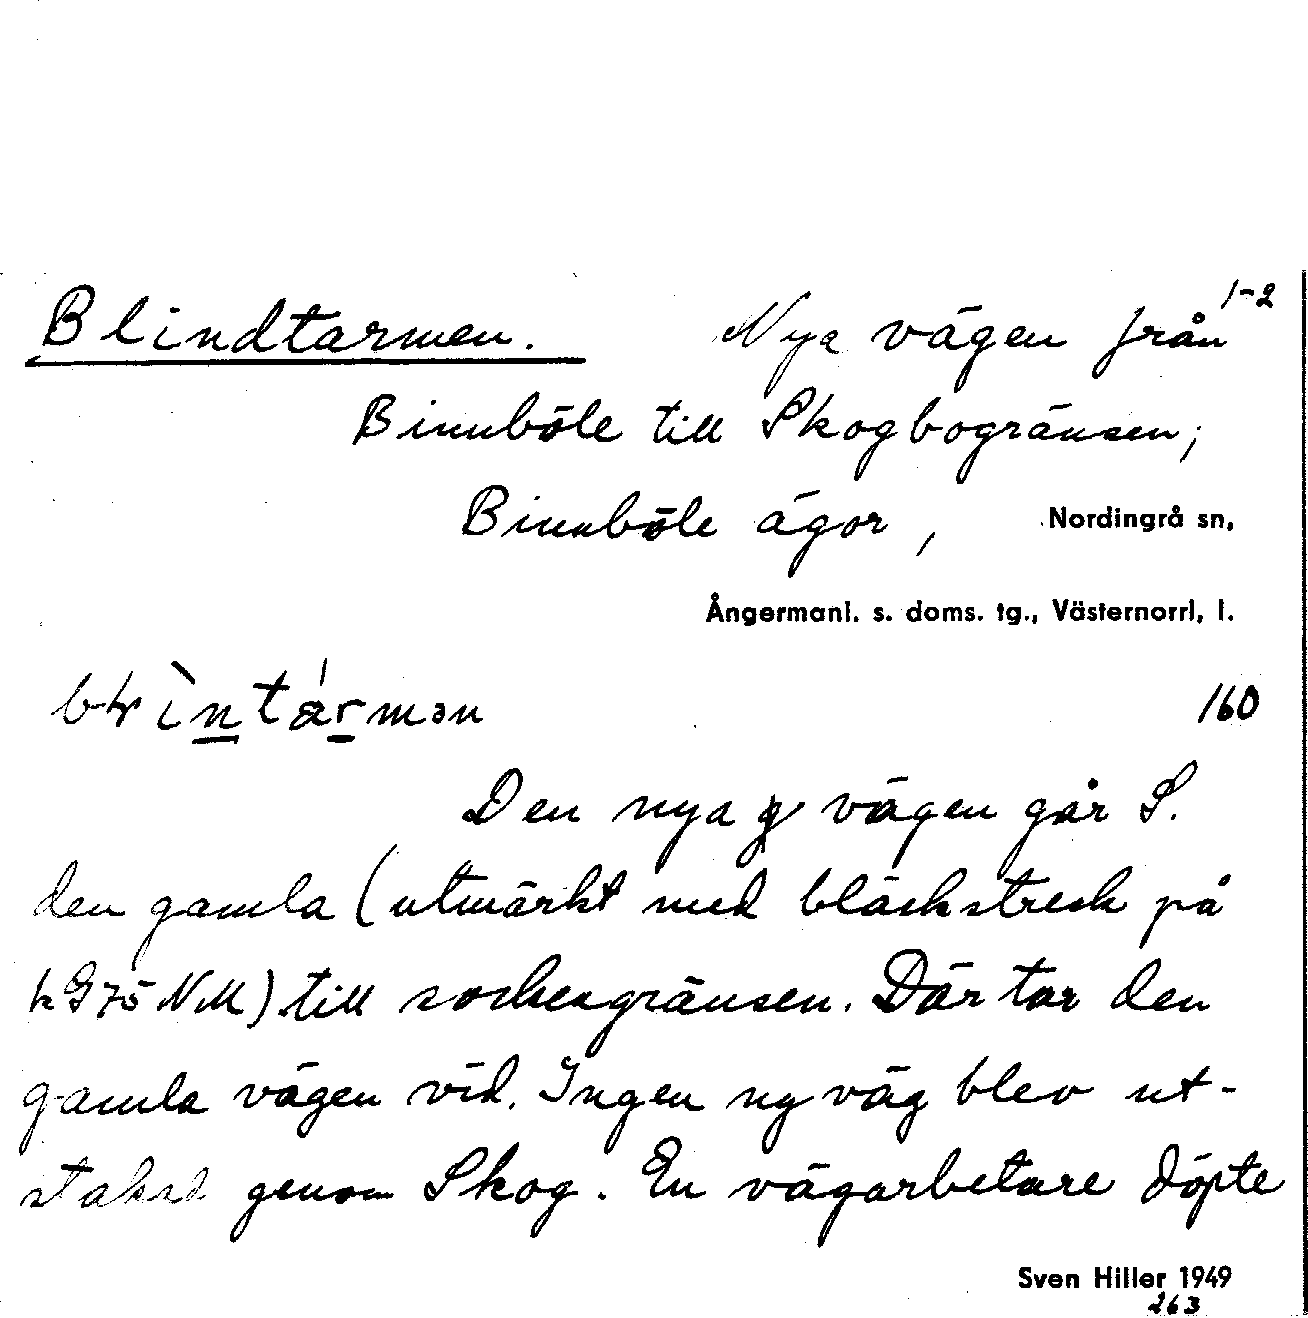 1-2
Blindtarmen. Nya vägen från
Binnböle till Skogbogränsen;
Binnböle ägor, Nordingrå sn,
Ångermanl. s. doms. tg., Västernorrl. l.
160
Den nya vägen går S.
den gamla (utmärkt med bläckstreck på
k 975 NM) till sockengränsen. Där tar den
gamla vägen vid. Ingen ny väg blev ut-
stakad genom Skog. En vägarbetare döpte
Sven Hiller 1949
263